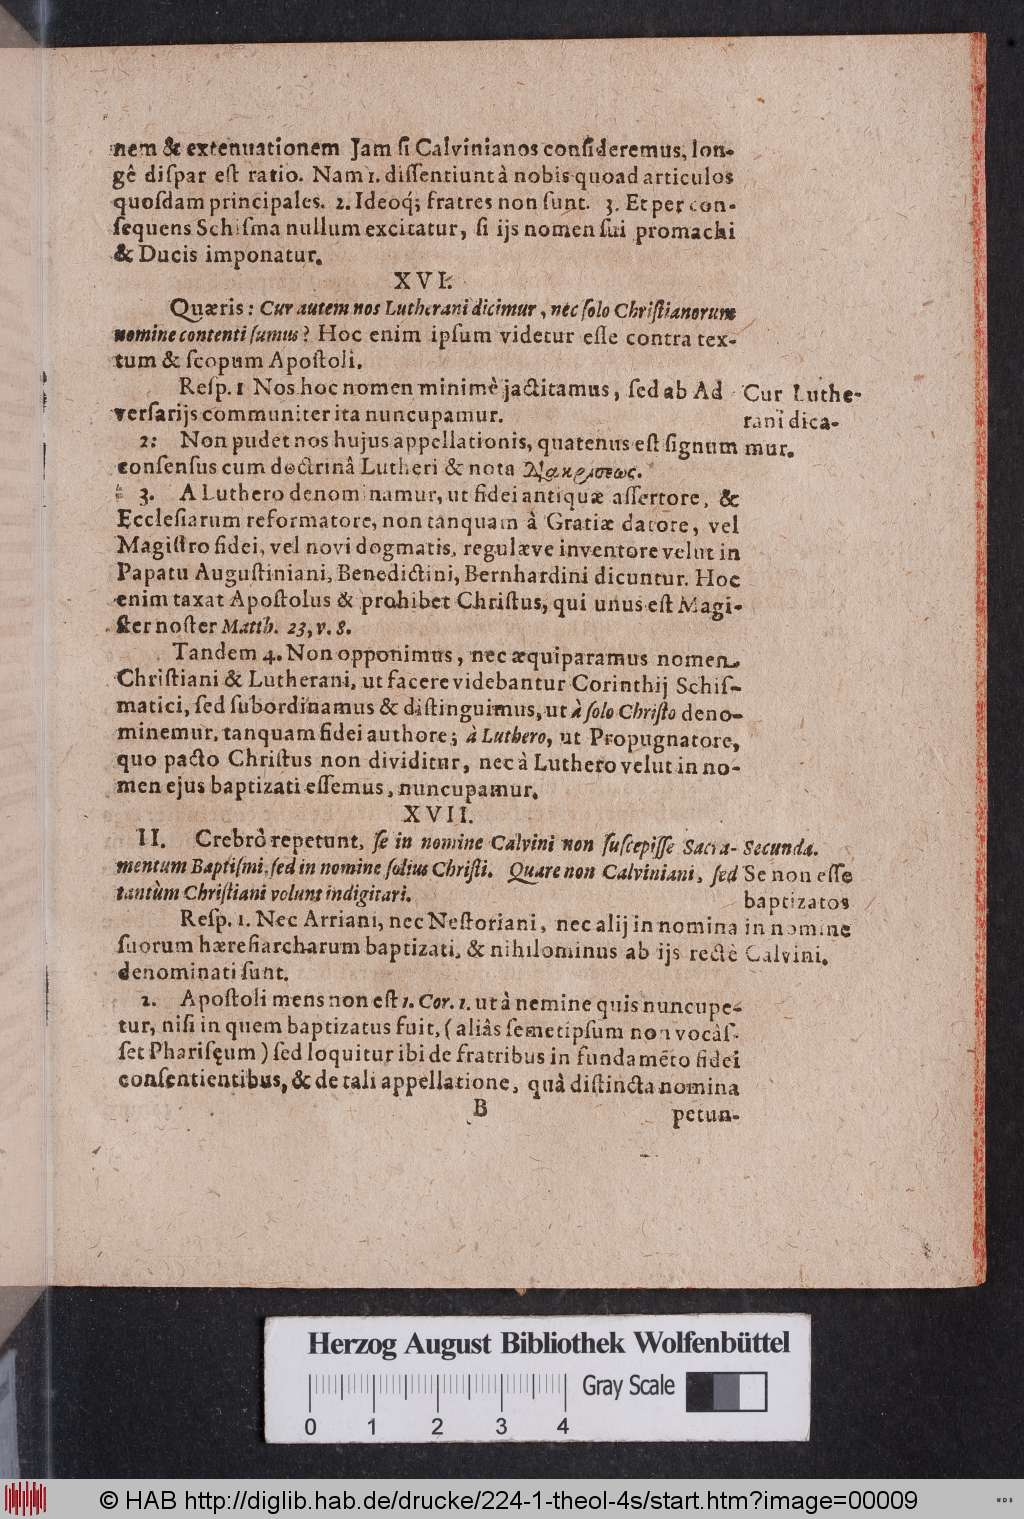 nem & extenuationem Jam ſi Calvinianos conſideremus, lon-
gê diſpar eſt ratio. Nam 1. diſſentiunt à nobis quoad articulos
quoſdam principales. 2. Ideoq́; fratres non ſunt. 3. Et per con-
ſequens Schiſma nullum excitatur, ſi ijs nomen ſui promachi
& Ducis imponatur.
XVI.
Quæris: Cur autem nos Lutherani dicimur, nec ſolo Chriſtianorum
nomine contenti ſumus? Hoc enim ipſum videtur eſſe contra tex-
tum & ſcopum Apoſtoli.
Reſp. 1 Nos hoc nomen minimè jactitamus, ſed ab Ad
verſarijs communiter ita nuncupamur.
Cur Luthe-
rani dica-
mur.
2: Non pudet nos hujus appellationis, quatenus eſt ſignum
conſenſus cum doctrinâ Lutheri & nota Διακρίσεως.
3. A Luthero denominamur, ut fidei antiquæ aſſertore, &
Eccleſiarum reformatore, non tanquam à Gratiæ datore, vel
Magiſtro fidei, vel novi dogmatis, regulæve inventore velut in
Papatu Auguſtiniani, Benedictini, Bernhardini dicuntur. Hoc
enim taxat Apoſtolus & prohibet Chriſtus, qui unus eſt Magi-
ſter noſter Matth. 23, v. 8.
Tandem 4. Non opponimus, nec æquiparamus nomen
Chriſtiani & Lutherani, ut facere videbantur Corinthij Schiſ-
matici, ſed ſubordinamus & diſtinguimus, ut à ſolo Chriſto deno-
minemur, tanquam fidei authore; à Luthero, ut Propugnatore,
quo pacto Chriſtus non dividitur, nec à Luthero velut in no-
men ejus baptizati eſſemus, nuncupamur.
XVII.
II. Crebrò repetunt, ſe in nomine Calvini non ſuſcepiſſe Sacra-
mentum Baptiſmi, ſed in nomine ſolius Chriſti. Quare non Calviniani, ſed
tantùm Chriſtiani volunt indigitari.
Secunda.
Se non eſſe
baptizatos
in nomine
Calvini.
Reſp. 1. Nec Arriani, nec Neſtoriani, nec alij in nomina
ſuorum hæreſiarcharum baptizati, & nihilominus ab ijs rectè
denominati ſunt.
2. Apoſtoli mens non eſt 1. Cor. 1. ut à nemine quis nuncupe-
tur, niſi in quem baptizatus fuit, (aliâs ſemetipſum non vocâſ-
ſet Phariſęum) ſed loquitur ibi de fratribus in fundamẽto fidei
conſentientibus, & de tali appellatione, quâ diſtincta nomina
B
petun-
Herzog August Bibliothek Wolfenbüttel
Gray Scale
0 1 2 3 4
© HAB http://diglib.hab.de/drucke/224-1-theol-4s/start.htm?image=00009
WDB